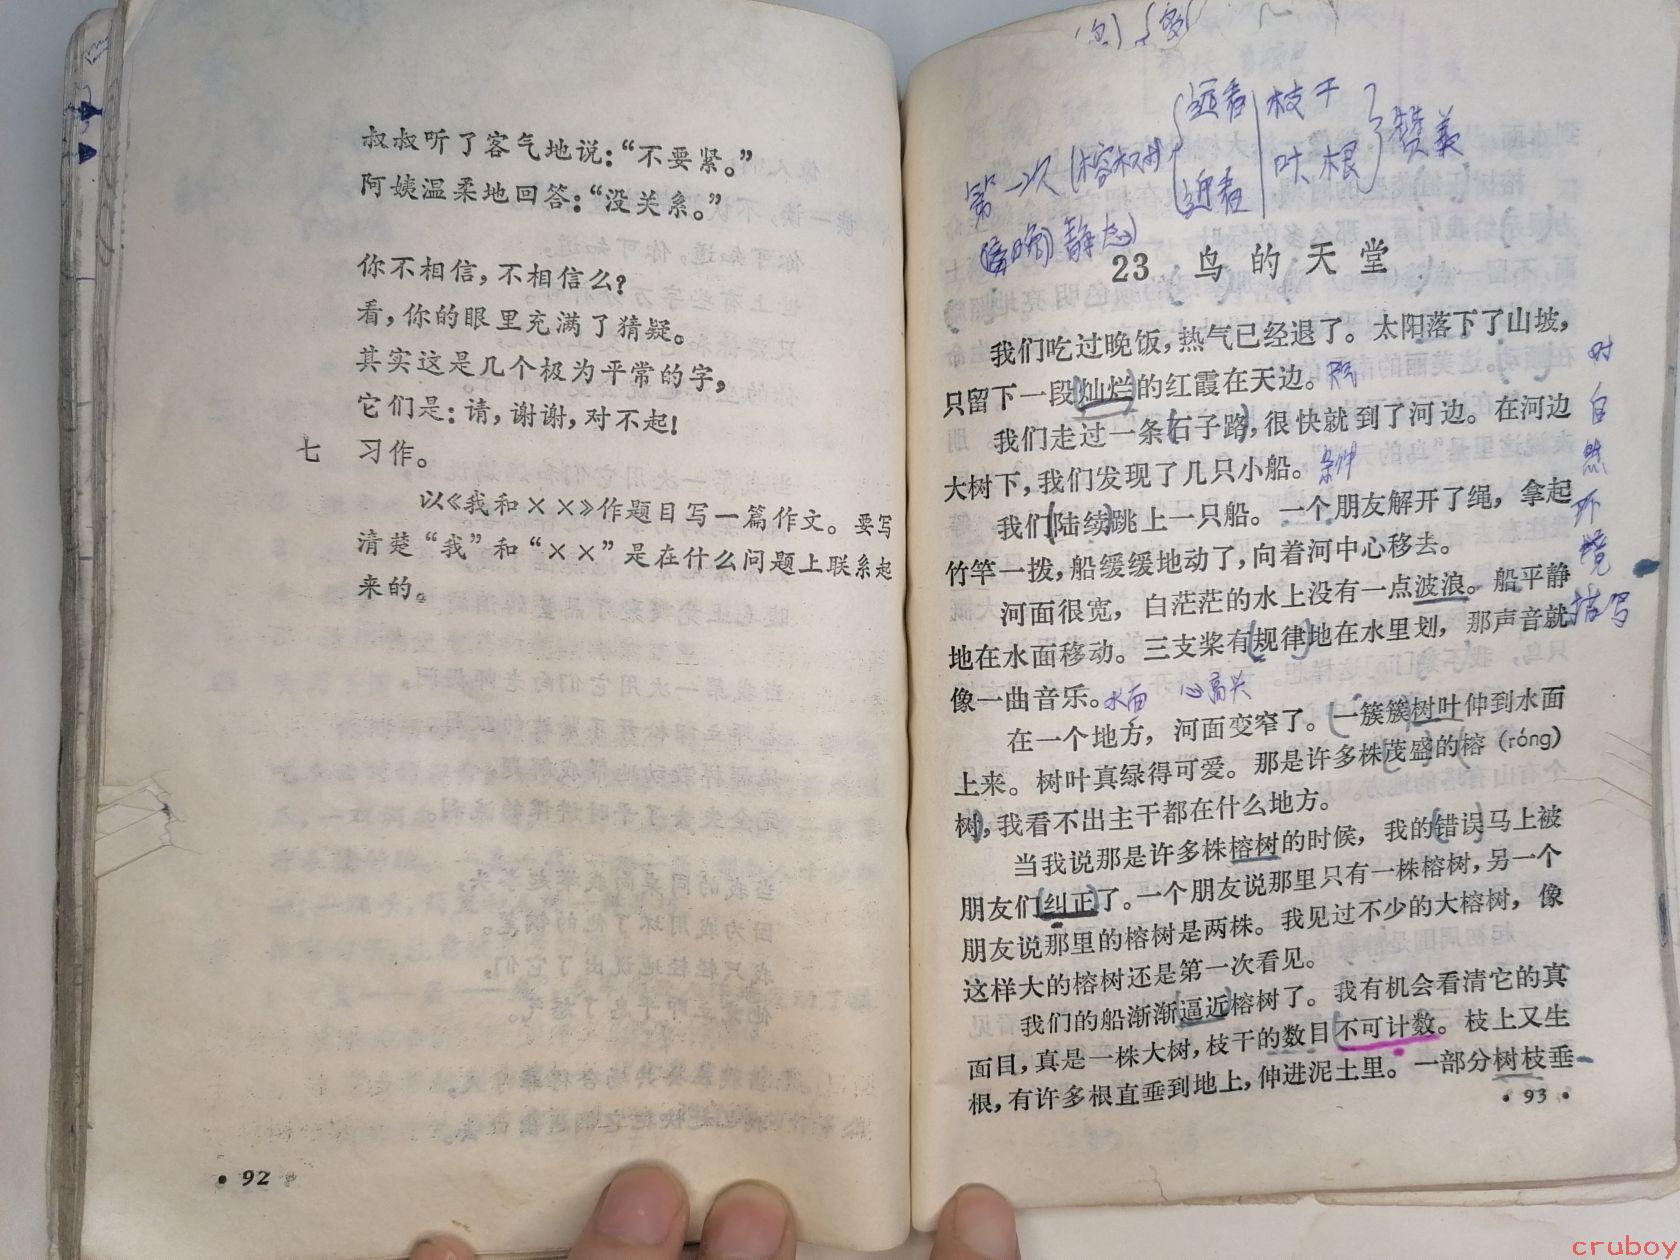 叔叔听了客气地说：“不要紧。”
阿姨温柔地回答：“没关系。”
你不相信，不相信么？
看，你的眼里充满了猜疑。
其实这是几个极为平常的字，
它们是：请，谢谢，对不起！
七 习作。
以《我和××》作题目写一篇作文。要写
清楚“我”和“××”是在什么问题上联系起
来的。
• 92
远看 枝干
第一次（榕树 赞美
近看 叶根
静态
23 鸟的天堂
我们吃过晚饭，热气已经退了。太阳落下了山坡，
只留下一段灿烂的红霞在天边。
我们走过一条石子路，很快就到了河边。在河边
大树下，我们发现了几只小船。
我们陆续跳上一只船。一个朋友解开了绳，拿起
竹竿一拨，船缓缓地动了，向着河中心移去。
河面很宽，白茫茫的水上没有一点波浪。船平静
地在水面移动。三支桨有规律地在水里划，那声音就
像一曲音乐。水面 心高兴
在一个地方，河面变窄了。一簇簇树叶伸到水面
上来。树叶真绿得可爱。那是许多株茂盛的榕（róng）
树，我看不出主干都在什么地方。
当我说那是许多株榕树的时候，我的错误马上被
朋友们纠正了。一个朋友说那里只有一株榕树，另一个
朋友说那里的榕树是两株。我见过不少的大榕树，像
这样大的榕树还是第一次看见。
我们的船渐渐逼近榕树了。我有机会看清它的真
面目，真是一株大树，枝干的数目不可计数。枝上又生
根，有许多根直垂到地上，伸进泥土里。一部分树枝垂
• 93 •
对自然环境描写
cruboy